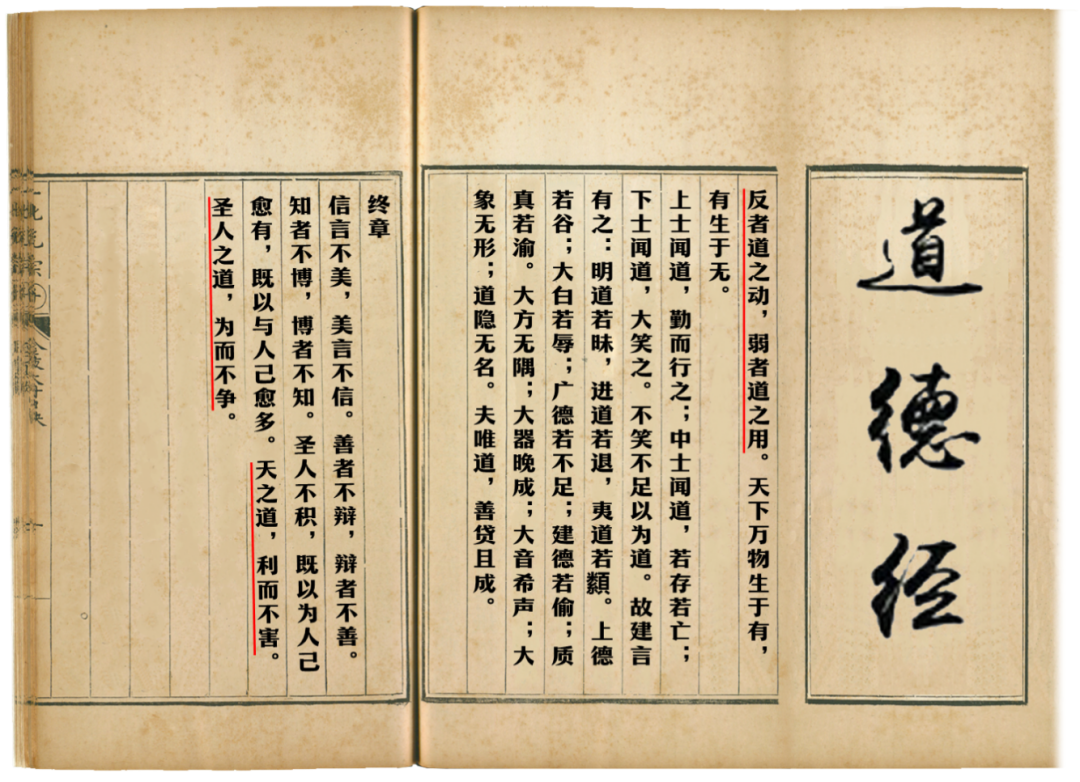 道德经
反者道之动，弱者道之用。天下万物生于有，
有生于无。
上士闻道，勤而行之；中士闻道，若存若亡；
下士闻道，大笑之。不笑不足以为道。故建言
有之：明道若昧，进道若退，夷道若纇。上德
若谷；大白若辱；广德若不足；建德若偷；质
真若渝。大方无隅；大器晚成；大音希声；大
象无形；道隐无名。夫唯道，善贷且成。
终章
信言不美，美言不信。善者不辩，辩者不善。
知者不博，博者不知。圣人不积，既以为人己
愈有，既以与人己愈多。天之道，利而不害。
圣人之道，为而不争。